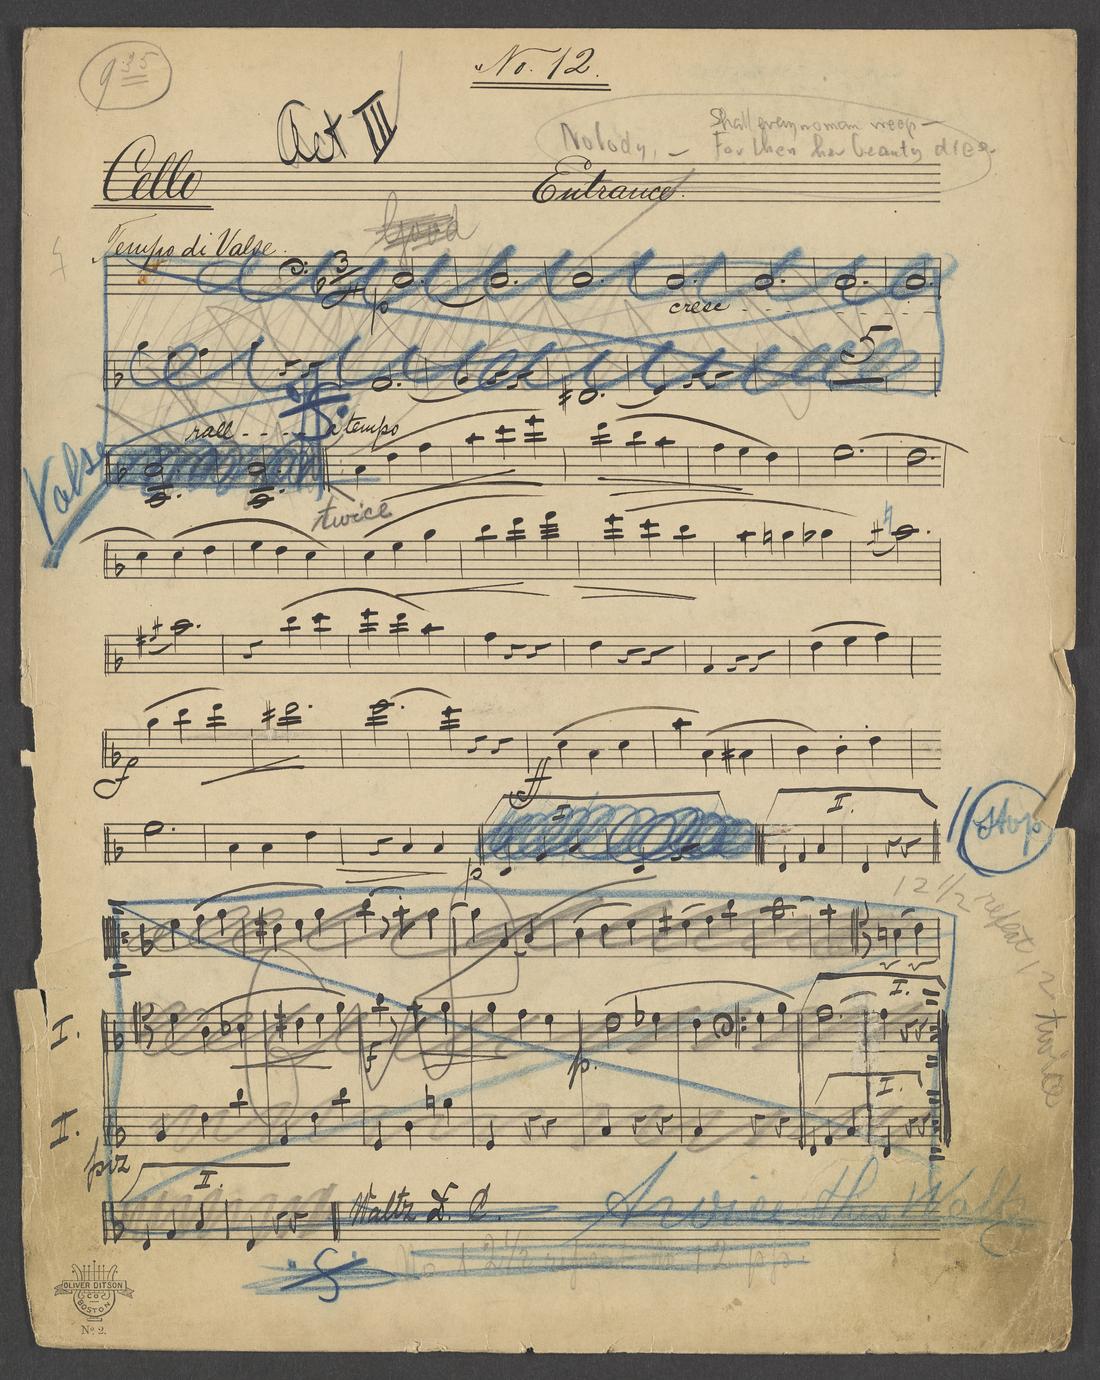 9 35
"No. 12.
Act III
Nobody, – Shall every woman weep –
For then her beauty dies.
Cello
Entrance.
Good
Tempo di Valse.
p
cresc
5
rall - - - a tempo
Valse
twice
f
ff
I.
I.
Stop
p
12 1/2 repeat 12 twice
I.
I.
f
p.
II.
I.
piz
I.
Waltz D. C.
Twice this Waltz
No 12 1/2 repeat No 12 pp.
OLIVER DITSON
CO
BOSTON
No. 2.